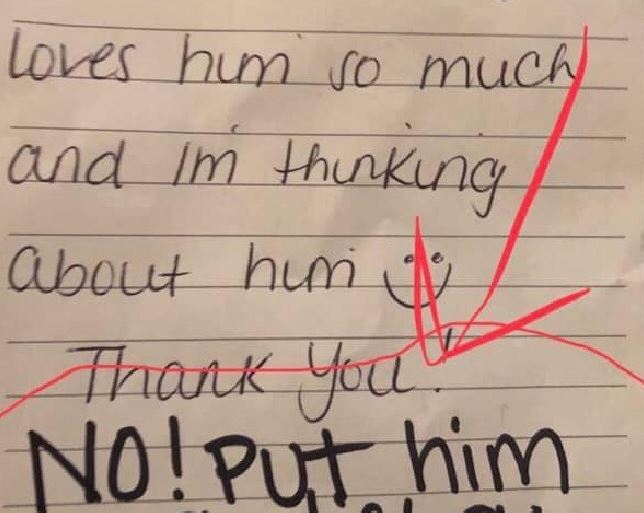 loves him so much
and Im thinking
about him
Thank you.
NO! Put him